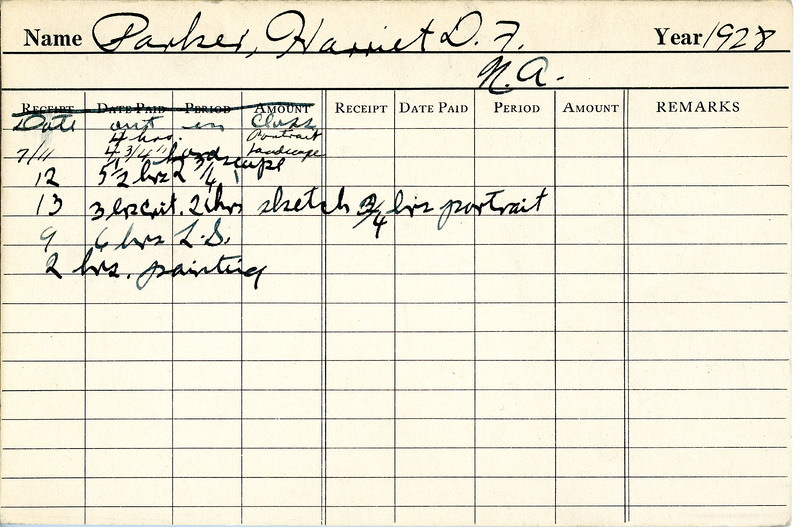 Name Parker, Harriet D. F. Year 1928
N.A.
RECEIPT DATE PAID PERIOD AMOUNT RECEIPT DATE PAID PERIOD AMOUNT REMARKS
Date out in Class
4 hrs. Portrait
7/11 4 3/4 " Landscape Landscape
12 5 1/2 hrs 2 3/4
13 3 hrs crit. 2 hrs sketch 3/4 hrs portrait
9 6 hrs L.S.
2 hrs. painting